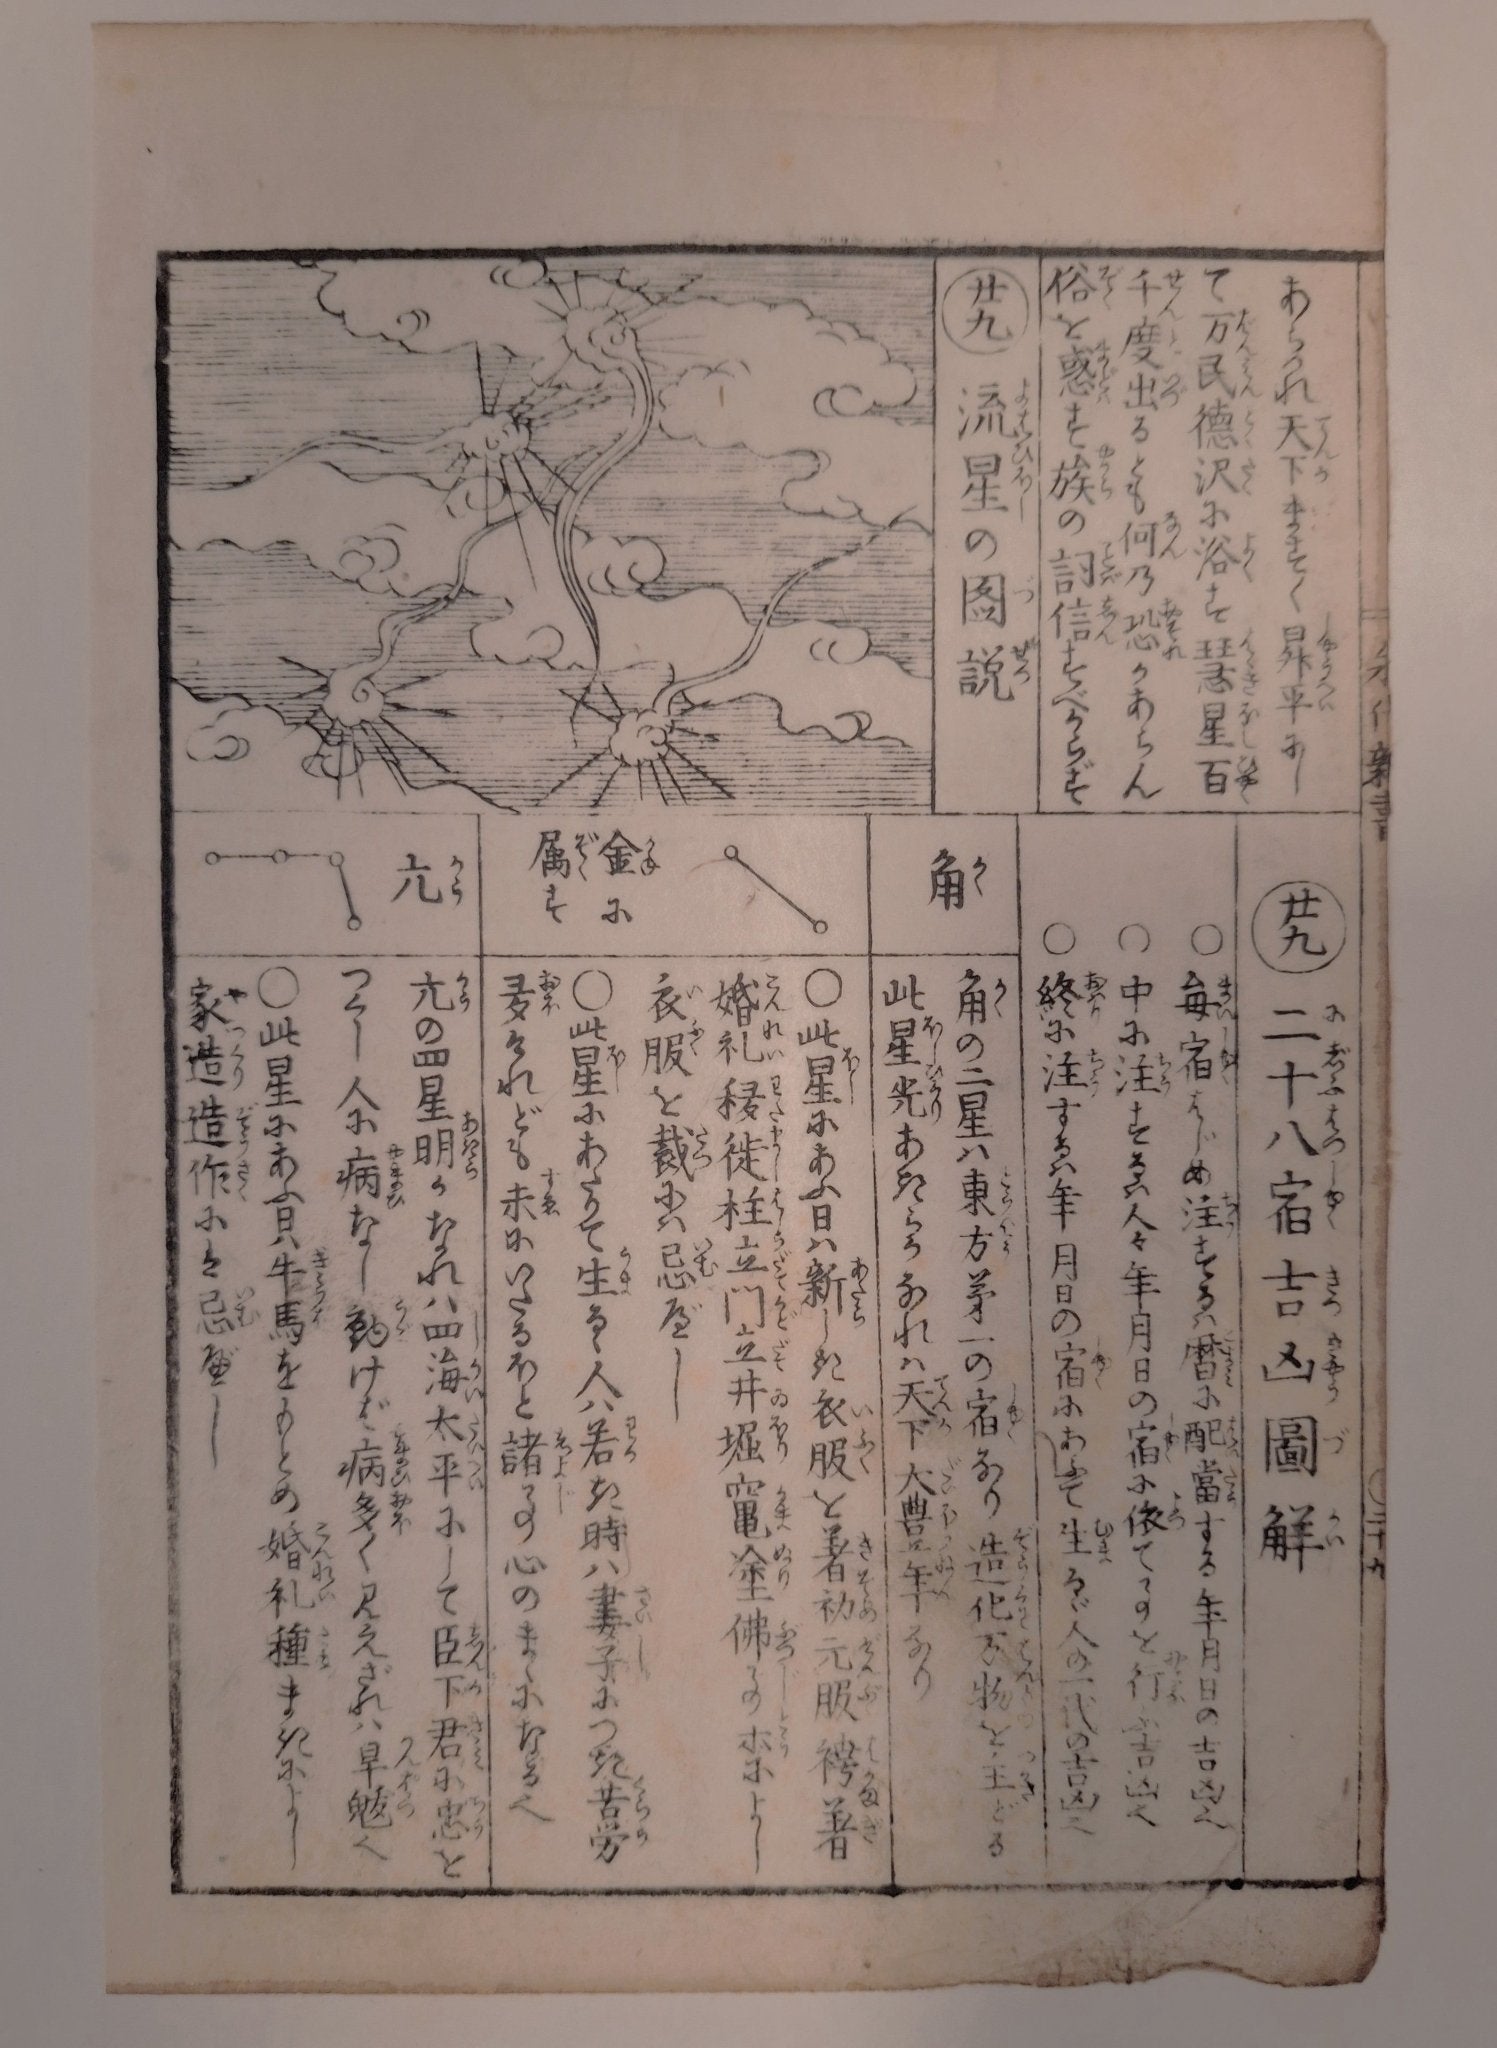 あらうれ天下まさしく昇平にし
て万民徳沢に浴す彗星百
千度出るとも何乃恐かあらん
俗を惑す族の詞信ずべからず
廿九 流星の図説
廿九 二十八宿吉凶圖解
○毎宿はじめ注するハ暦に配當する年月日の吉凶也
○中に注するハ人々年月日の宿に依てその行ふ吉凶也
○終に注するハ年月日の宿にあふて生るゝ人の一代の吉凶也
角
角の二星ハ東方第一の宿なり造化万物を主どる
此星光あきらかなれハ天下大豊年なり
金に
属す
○此星にあふ日ハ新しき衣服を着初元服袴着
婚礼移徙柱立門立井堀竃塗佛事の求によし
衣服を裁にハ忌べし
○此星にあたりて生るゝ人ハ若き時ハ妻子につき苦労
多けれども末にいたるほと諸事心のまゝになる也
亢
亢の四星明かなれハ四海太平にして臣下君に忠を
つくし人に病なし動けば病多く見えざれハ旱魃也
○此星にあふ日ハ牛馬をもとめ婚礼種まきによし
家造造作にハ忌べし
二十九